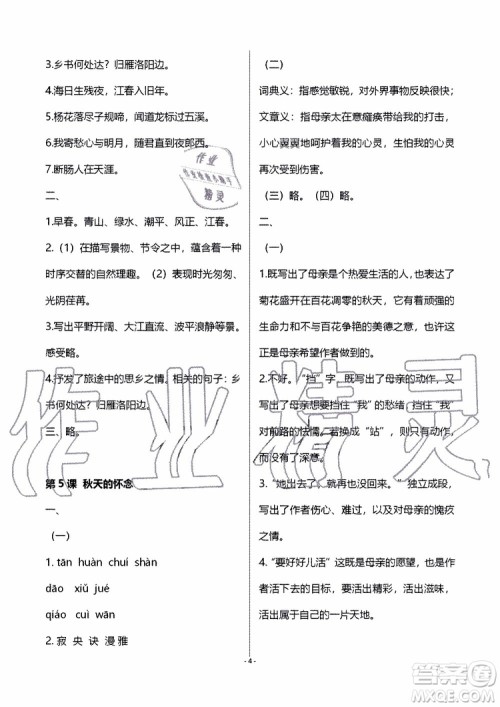 3.乡书何处达？归雁洛阳边。
4.海日生残夜，江春入旧年。
5.杨花落尽子规啼，闻道龙标过五溪。
6.我寄愁心与明月，随君直到夜郎西。
7.断肠人在天涯。
二、
1.早春。青山、绿水、潮平、风正、江春。
2.（1）在描写景物、节令之中，蕴含着一种
时序交替的自然理趣。（2）表现时光匆匆、
光阴荏苒。
3.写出平野开阔、大江直流、波平浪静等景。
感受略。
4.抒发了旅途中的思乡之情。相关的句子：乡
书何处达？归雁洛阳边。
三、略。
第 5 课 秋天的怀念
一、
（一）
1. tān huàn chuí shàn
dāo xiǔ jué
qiáo cuì wān
2. 寂 央 诀 漫雅
（二）
词典义：指感觉敏锐，对外界事物反映很快；
文章义：作者指母亲太在意瘫痪带给我的打击，
小心翼翼地呵护我的心灵，生怕我的心灵
再受到伤害。
（三）略。（四）略。
二、
（一）
1.既写出了母亲是个热爱生活的人，也写出了
菊花盛开在百花凋零的秋天，它有着顽强的
生命力和不与百花争艳的美德之意，更写出
了母亲希望作者做到的。
2.不好。“挡”字，既写出了母亲的动作，又
写出了母亲想要挡住“我”的愁绪，挡住“我”
对前路的怯懦。若换成“站”，则只有动作而
没有了深意。
3.“她出去了，就再也没回来。”独立成段，
写出了作者伤心欲绝以及对母亲的愧疚
之情。
4.“要好好儿活”这既是母亲的愿望，也是作
者活下去的目标，活出精彩，活出滋味，
活出属于自己的一片天地。
- 4 -
作业精灵